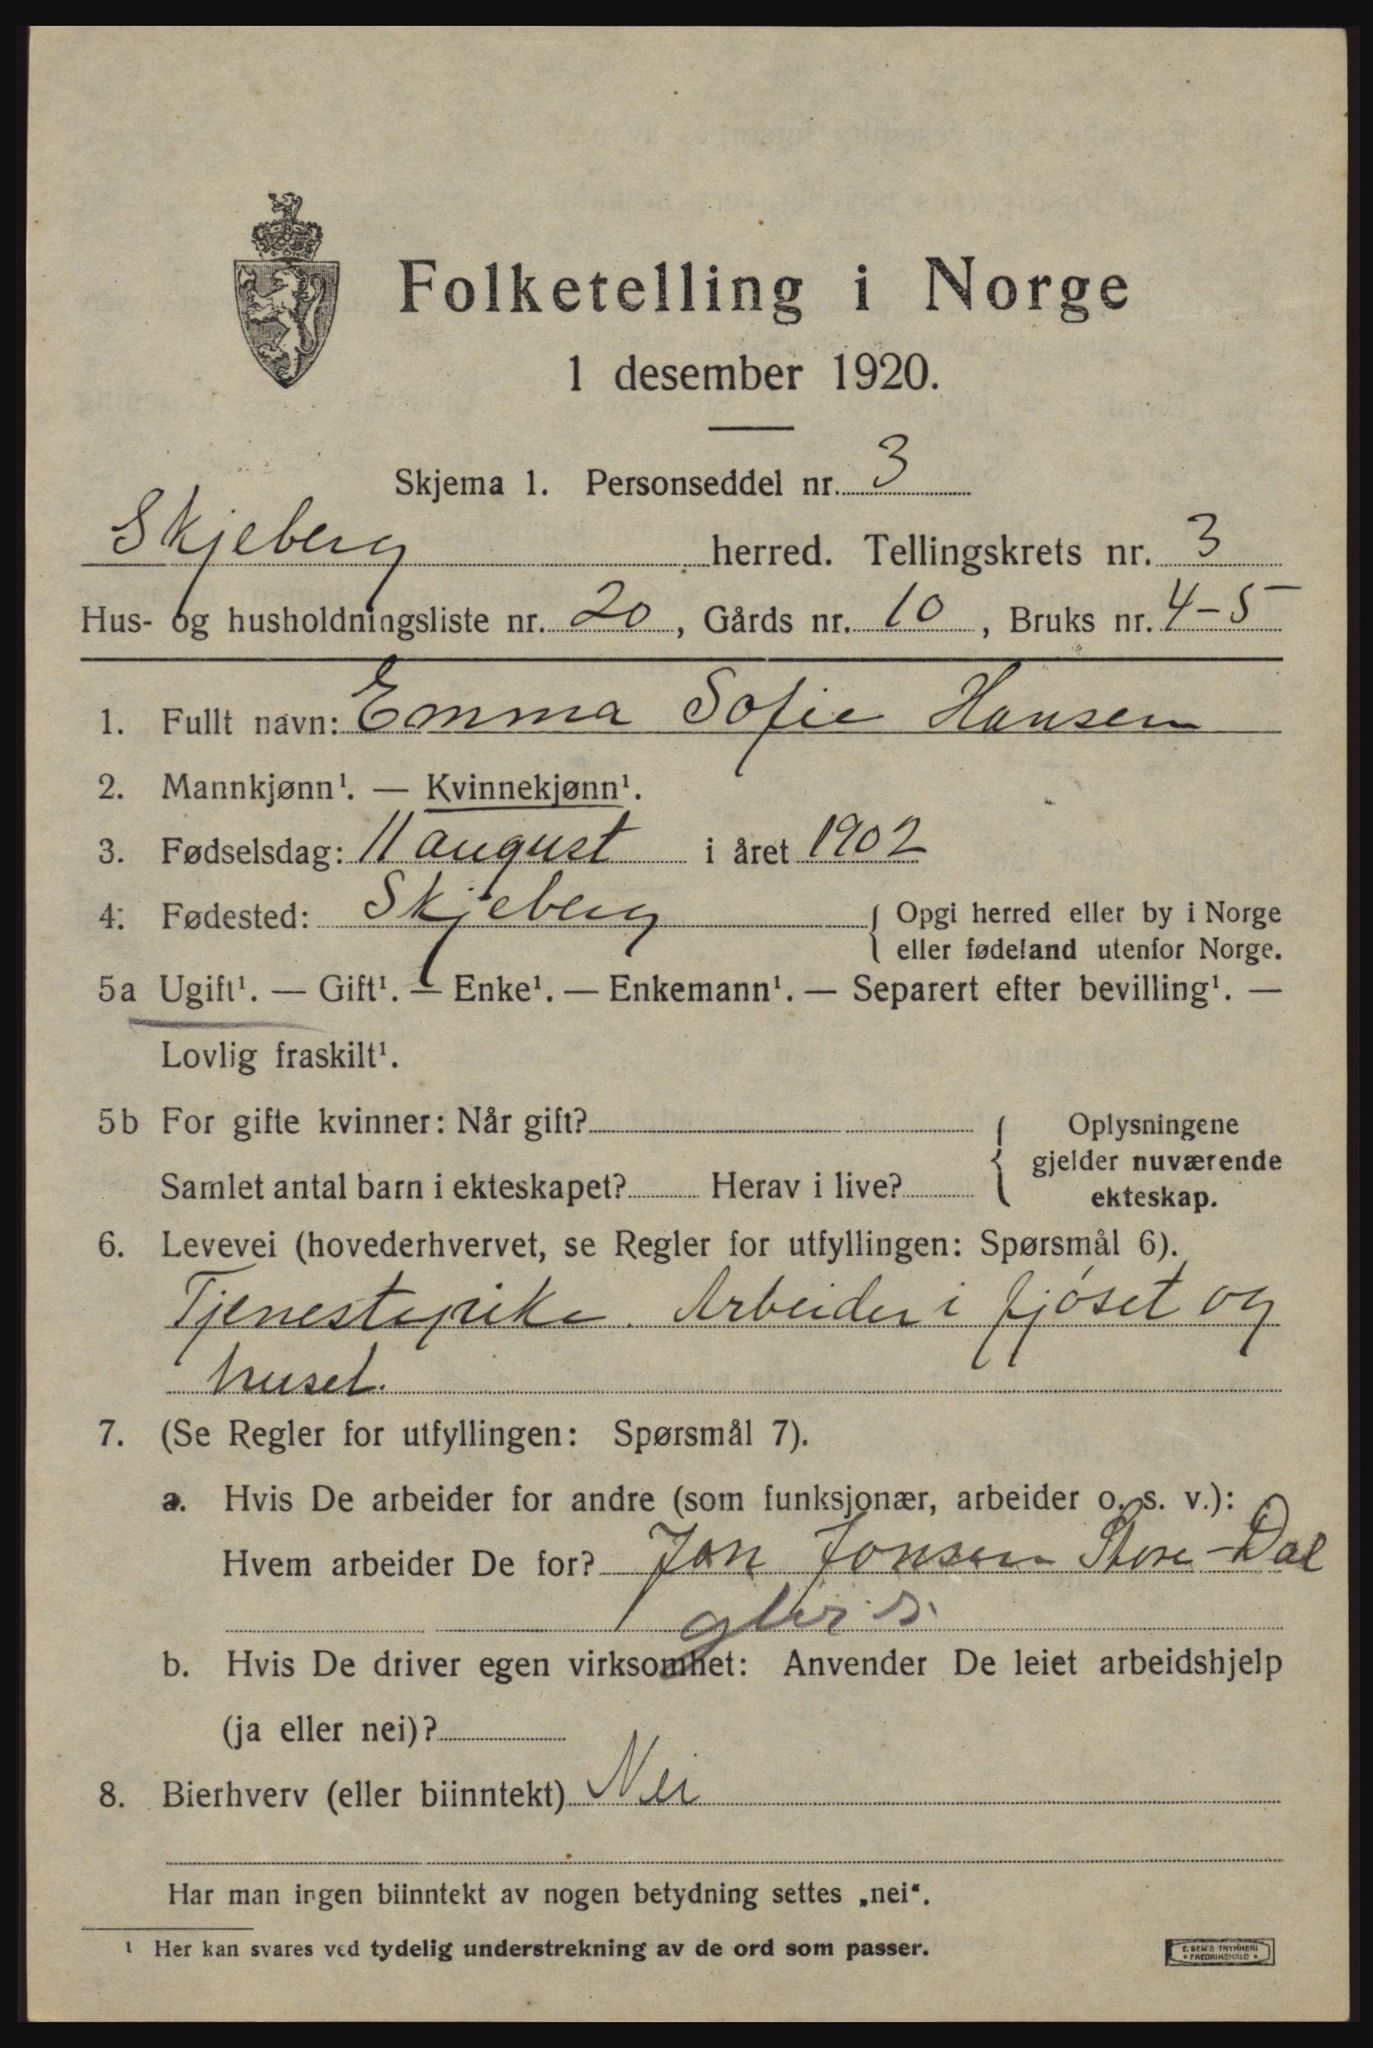 Folketelling i Norge
1 desember 1920.
Skjema 1. Personseddel nr. 3
Skjeberg herred. Tellingskrets nr. 3
Hus- og husholdningsliste nr. 20, Gårds nr. 10, Bruks nr. 4-5
1. Fullt navn: Emma Sofie Hansen
2. Mannkjønn¹. — Kvinnekjønn¹.
3. Fødselsdag: 11 august i året 1902
4. Fødested: Skjeberg { Opgi herred eller by i Norge
eller fødeland utenfor Norge.
5a Ugift¹. — Gift¹. — Enke¹. — Enkemann¹. — Separert efter bevilling¹. —
Lovlig fraskilt¹.
5b For gifte kvinner: Når gift? { Oplysningene
gjelder nuværende
Samlet antal barn i ekteskapet? Herav i live? ekteskap.
6. Levevei (hovederhvervet, se Regler for utfyllingen: Spørsmål 6).
Tjenestepike. Arbeider i fjøset og
huset.
7. (Se Regler for utfyllingen: Spørsmål 7).
a. Hvis De arbeider for andre (som funksjonær, arbeider o. s. v.):
Hvem arbeider De for? Jon Jonsen Store-Dal
b. Hvis De driver egen virksomhet: Anvender De leiet arbeidshjelp
(ja eller nei)?
8. Bierhverv (eller biinntekt) Nei
Har man ingen biinntekt av nogen betydning settes „nei“.
¹ Her kan svares ved tydelig understrekning av de ord som passer.
E. SEM'S TRYKKERI
FREDRIKSHALD